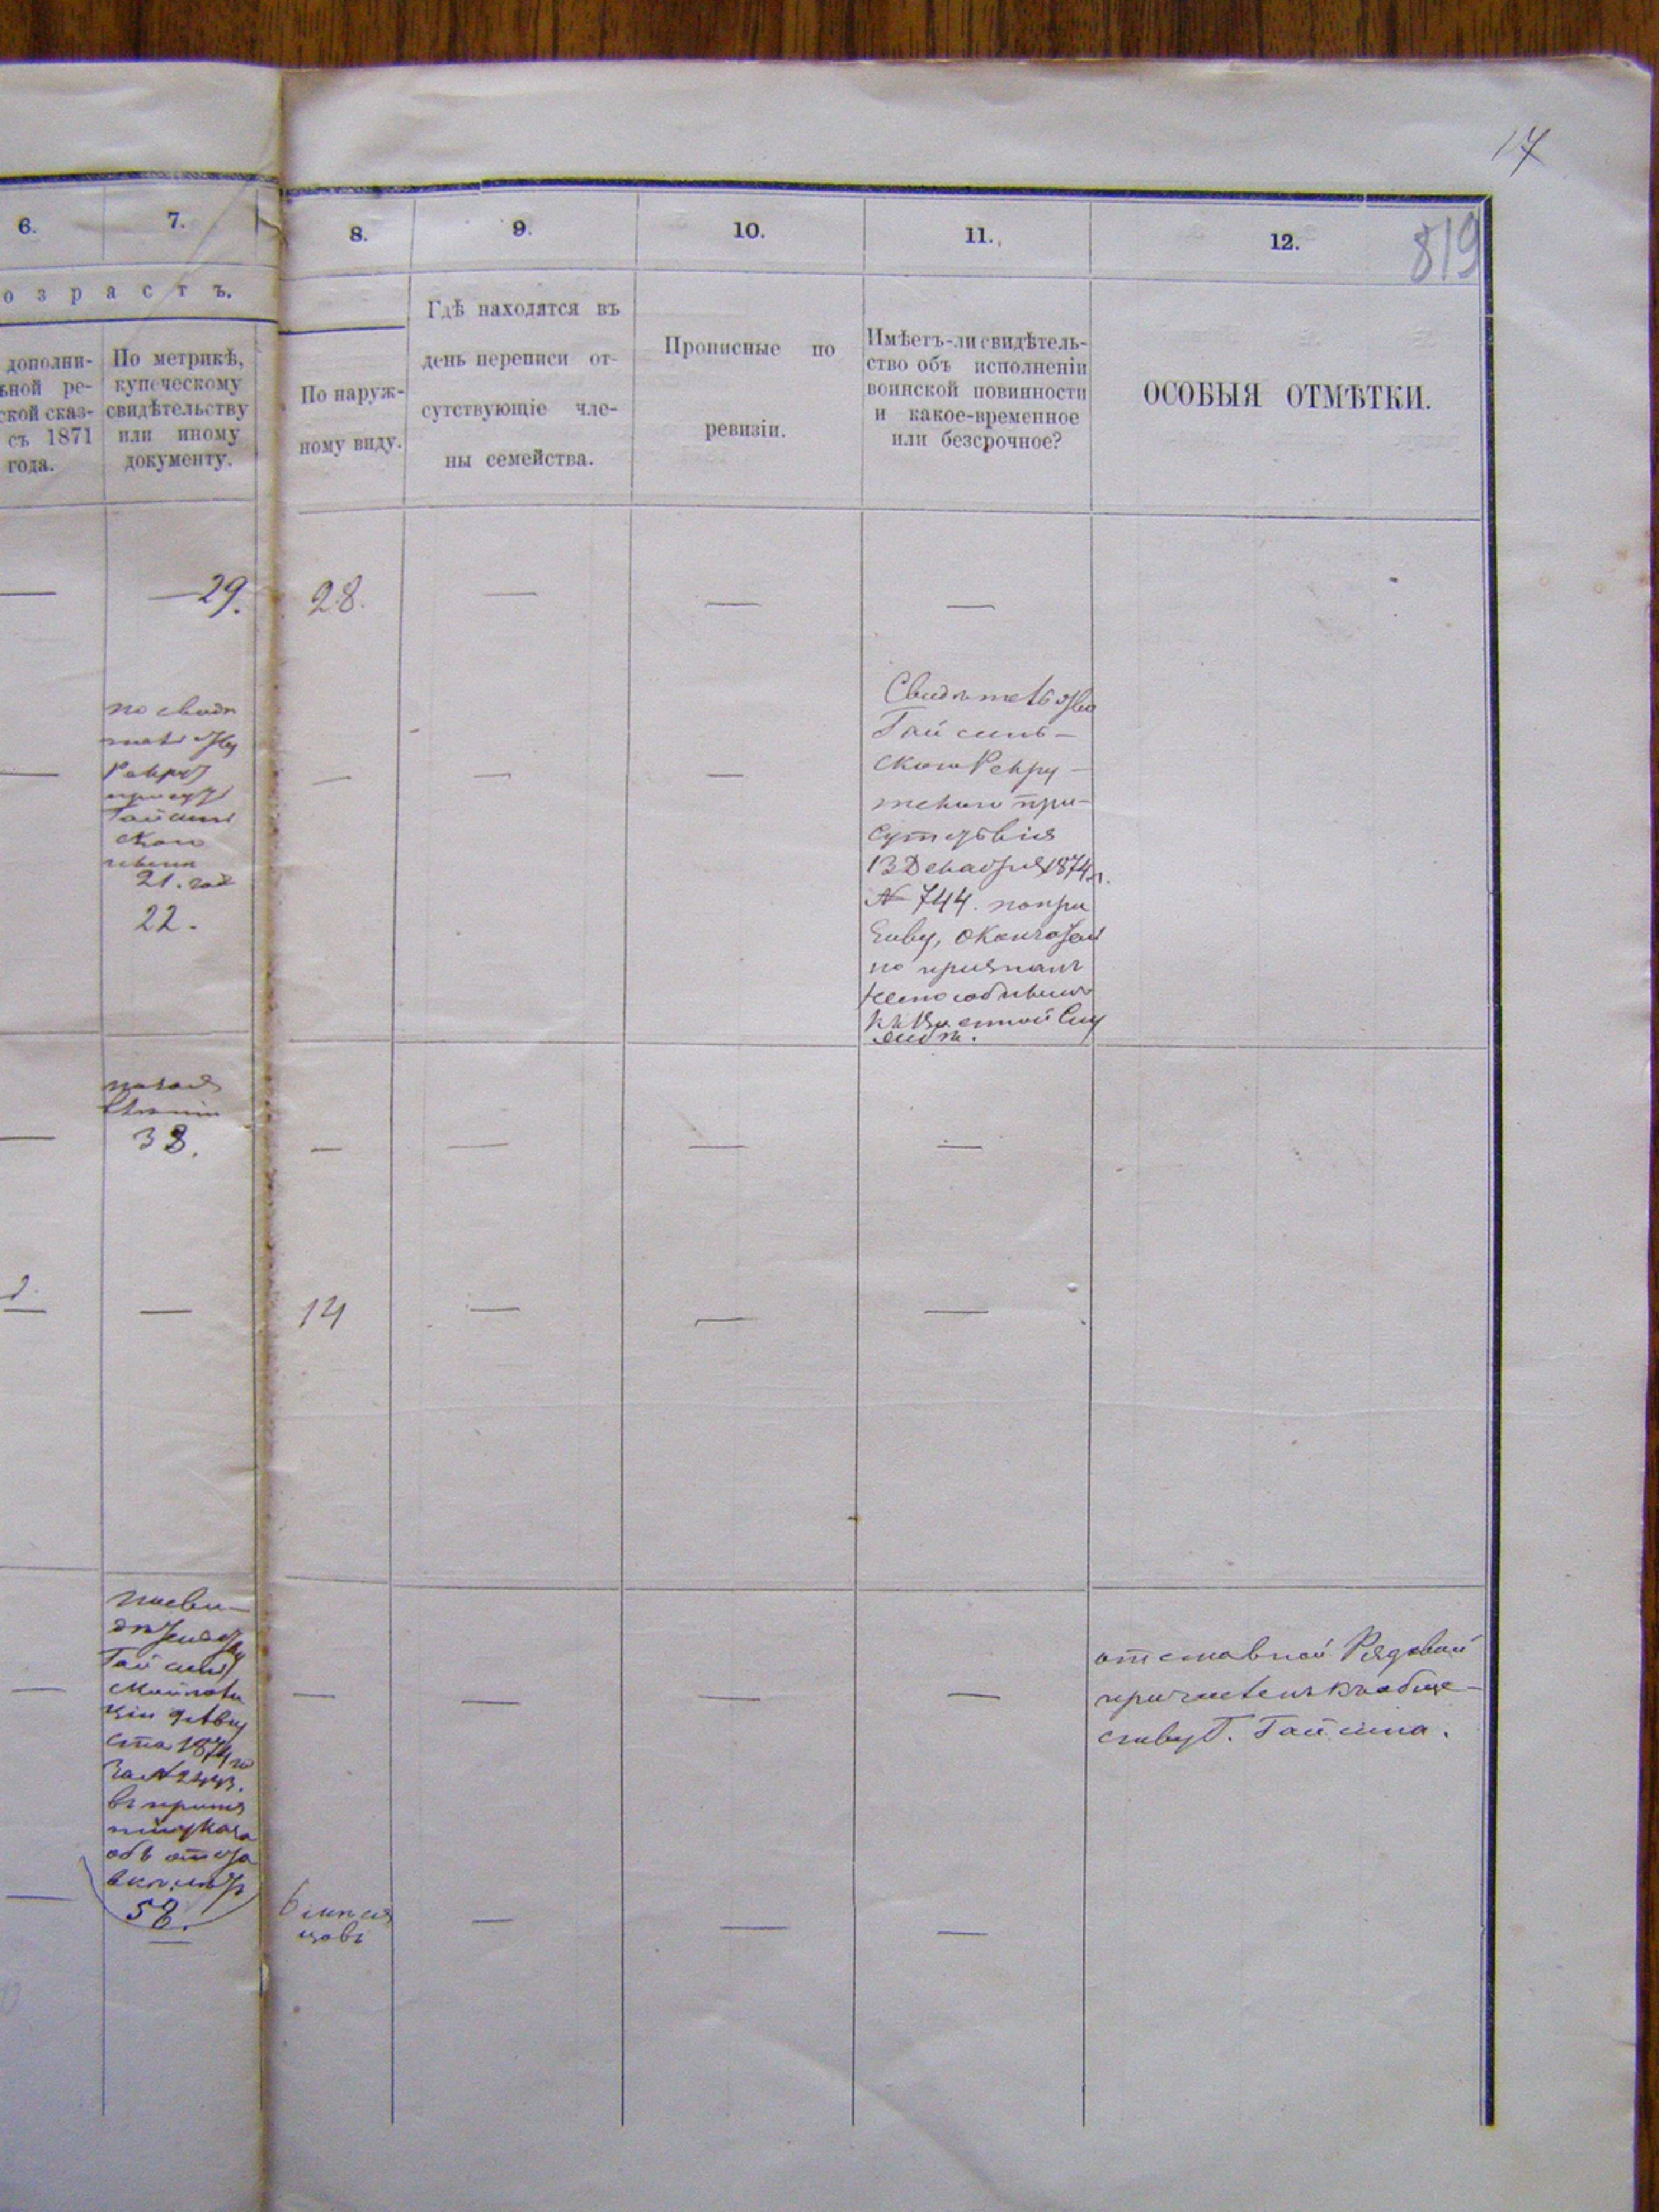 17
819
6.
7.
8.
9.
10.
11.
12.
о з р а с т ъ.
дополни-
ьной ре-
ской сказ-
съ 1871
года.
По метрикѣ,
купеческому
свидѣтельству
или иному
документу.
По наруж-
ному виду.
Гдѣ находятся въ
день переписи от-
сутствующіе чле-
ны семейства.
Прописные по
ревизіи.
Имѣетъ-ли свидѣтель-
ство объ исполненіи
воинской повинности
и какое-временное
или безсрочное?
ОСОБЫЯ ОТМѢТКИ.
— 29.
28.
— — —
по свидѣ
тельству
Рекрут
присут
Гайсин
скаго
21. год
22.
Свидѣтельство
Гайсинь-
скаго Рекру-
тскаго при-
сутствія
13 Декабря 1874 г.
№ 744. по при
зыву, окончател
но признанъ
неспособнымъ
къ Военной Слу
жбѣ.
38.
—
14
— — —
по сви-
дѣтельству
Гайсин
ской поли
ціи 9 Авгу
ста 1874 го
за №
объ отста
58.
6 мѣся
цовъ
отставной Рядовой
причисленъ къ обще-
ству Г. Гайсина.